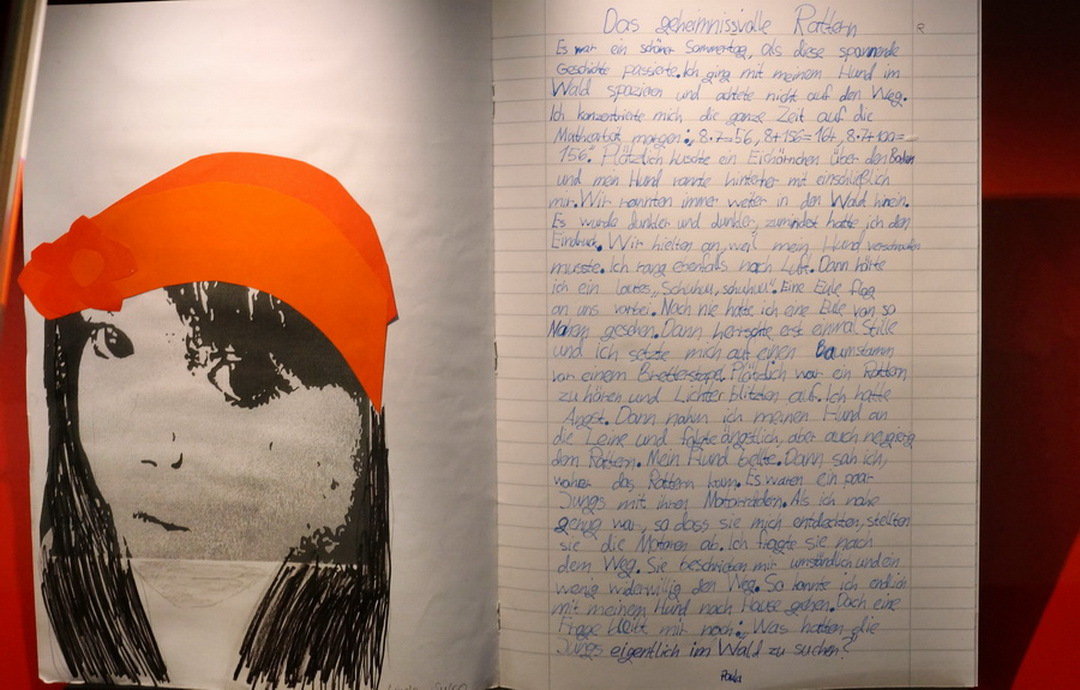 Das geheimnissvolle Rattern
R
Es war ein schöner Sommertag, als diese spannende
Geschichte passierte. Ich ging mit meinem Hund im
Wald spazieren und achtete nicht auf den Weg.
Ich konzentrierte mich die ganze Zeit auf die
Mathearbeit morgen: „8·7=56, 8+156=164, 8·7+100=
156." Plötzlich huschte ein Eichörnchen über den Boden
und mein Hund rannte hinterher mit einschließlich
mir. Wir rannten immer weiter in den Wald hinein.
Es wurde dunkler und dunkler, zumindest hatte ich den
Eindruck. Wir hielten an, weil mein Hund verschnaufen
musste. Ich rang ebenfalls nach Luft. Dann hörte
ich ein lautes „Schuhuu, schuhuu". Eine Eule flog
an uns vorbei. Noch nie hatte ich eine Eule von so
Nahem gesehen. Dann herrschte erst einmal Stille
und ich setzte mich auf einen Baumstamm
vor einem Bretterstapel. Plötzlich war ein Rattern
zu hören und Lichter blitzten auf. Ich hatte
Angst. Dann nahm ich meinen Hund an
die Leine und folgte ängstlich, aber auch neugierig
dem Rattern. Mein Hund bellte. Dann sah ich,
woher das Rattern kam. Es waren ein paar
Jungs mit ihren Motorrädern. Als ich nahe
genug war, so dass sie mich entdeckten, stellten
sie die Motoren ab. Ich fragte sie nach
dem Weg. Sie beschrieben mir umständlich und ein
wenig widerwillig den Weg. So konnte ich endlich
mit meinem Hund nach Hause gehen. Doch eine
Frage bleibt mir noch: „Was hatten die
Jungs eigentlich im Wald zu suchen?
Paula